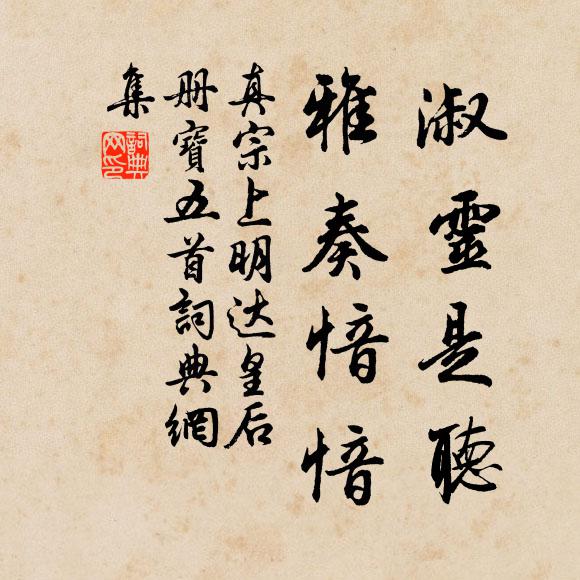 淑靈是聽
雅奏愔愔
真宗上明达皇后
册寶五首詞典網
集
詞典網印